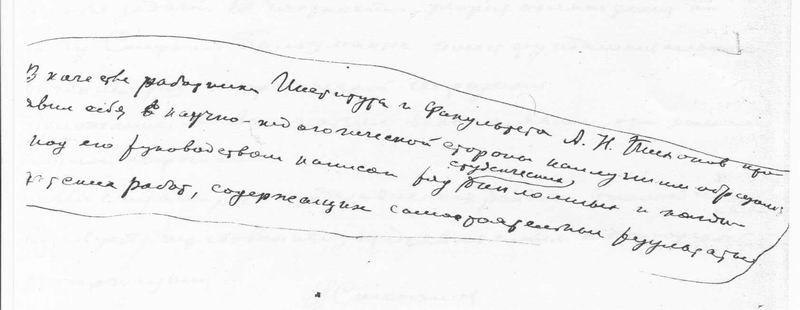 В качестве работника Института и Факультета А. Н. Тихонов про-
явил себя в научно-педагогической стороны наилучшим образом:
под его руководством написан ряд студенческих дипломных и канди-
датских работ, содержащих самостоятельные результаты